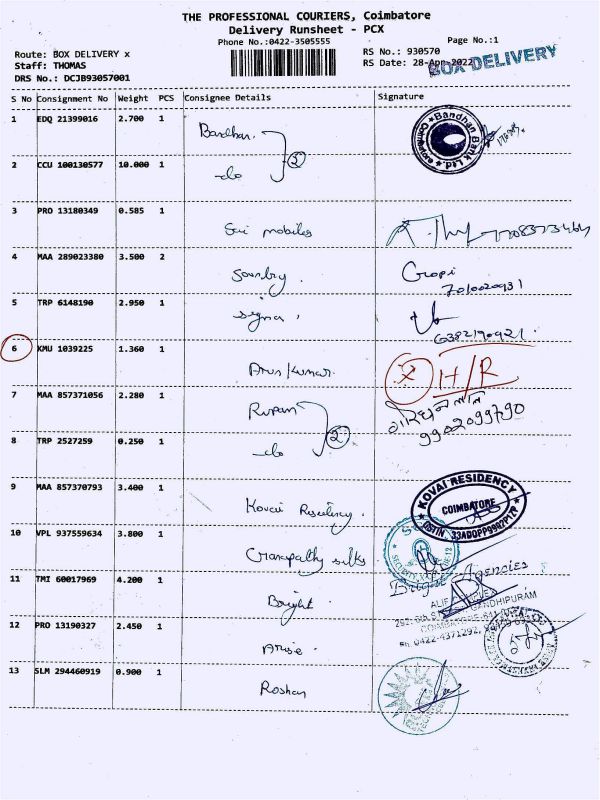 THE PROFESSIONAL COURIERS, Coimbatore
Delivery Runsheet - PCX
Phone No.:0422-3505555
Page No.:1
Route: BOX DELIVERY x
RS No.: 930570
Staff: THOMAS
RS Date: 28-Apr-2022
BOX DELIVERY
DRS No.: DCJB93057001
S No Consignment No Weight PCS Consignee Details Signature
1 EDQ 21399016 2.700 1 Bandhan.
Bandhan Bank Ltd.
2 CCU 100130577 10.000 1 do
2
3 PRO 13180349 0.585 1 Sri mobiles
4 MAA 289023380 3.500 2 Gopi
7010020931
5 TRP 6148190 2.950 1 signa.
6382190921.
6 KMU 1039225 1.360 1 Arun kumar
H/R
7 MAA 857371056 2.280 1 Rupam
9902099790
8 TRP 2527259 0.250 1 do
2
9 MAA 857370793 3.400 1 Kovai Residency.
KOVAI RESIDENCY
COIMBATORE
10 VPL 937559634 3.800 1 Ganapathy silks
SECURITY
11 TMI 60017969 4.200 1 Bright.
Bright Agencies
GANDHIPURAM
Ph 0422-4371292
12 PRO 13190327 2.450 1 Arise.
13 SLM 294460919 0.900 1 Roshan